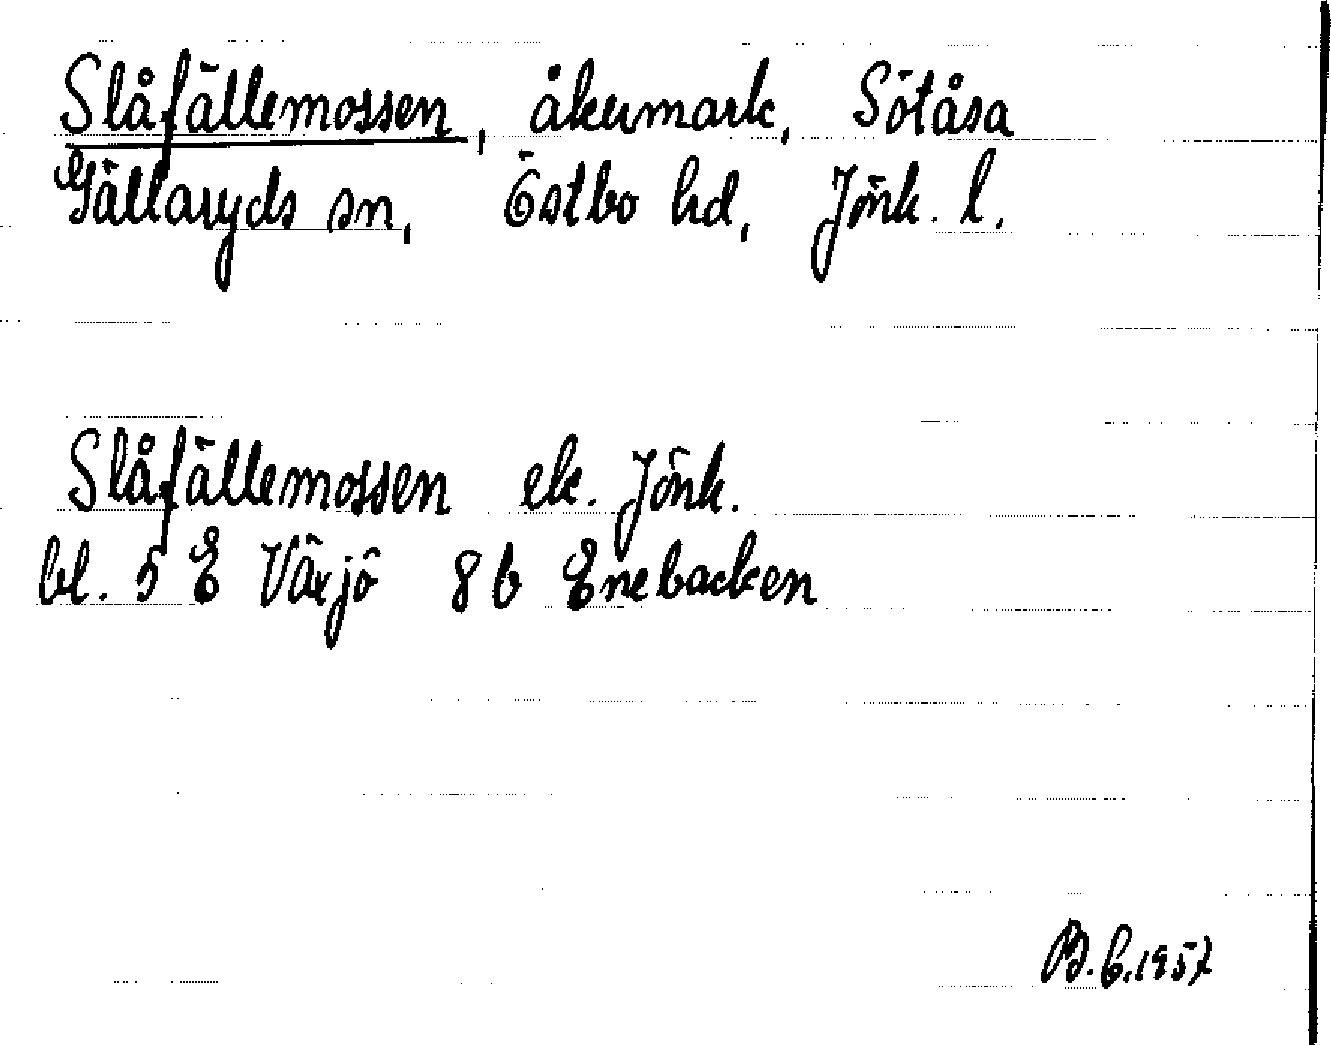 Slåfällemossen, åkermark, Sötåsa
Gällaryds sn, Östbo hd, Jönk. l.
Slåfällemossen ek. Jönk.
bl. 5 E Växjö 8 b Enebacken
B.C. 1957